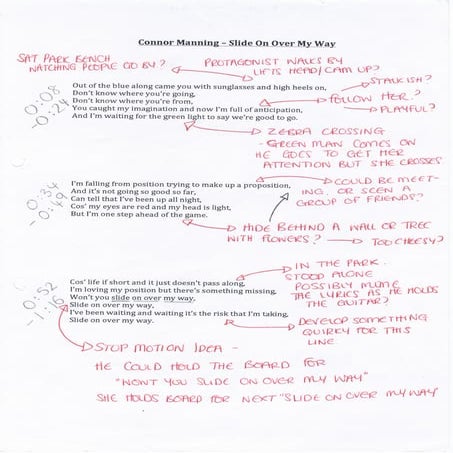 Connor Manning – Slide On Over My Way
SAT PARK BENCH
WATCHING PEOPLE GO BY?
PROTAGONIST WALKS BY
LIFTS HEAD/CAM UP?
Out of the blue along came you with sunglasses and high heels on,
Don't know where you're going,
Don't know where you're from,
You caught my imagination and now I'm full of anticipation,
And I'm waiting for the green light to say we're good to go.
0:08
-0:24
STALKISH?
FOLLOW HER?
PLAYFUL?
ZEBRA CROSSING
- GREEN MAN COMES ON
HE GOES TO GET HER
ATTENTION BUT SHE CROSSES
I'm falling from position trying to make up a proposition,
And it's not going so good so far,
Can tell that I've been up all night,
Cos' my eyes are red and my head is light,
But I'm one step ahead of the game.
0:34
-0:49
COULD BE MEET-
ING. OR SEEN A
GROUP OF FRIENDS?
HIDE BEHIND A WALL OR TREE
WITH FLOWERS?
TOO CHEESY?
Cos' life if short and it just doesn't pass along,
I'm loving my position but there's something missing,
Won't you slide on over my way,
Slide on over my way,
I've been waiting and waiting it's the risk that I'm taking,
Slide on over my way.
0:52
-1:16
IN THE PARK.
STOOD ALONE
POSSIBLY MIME
THE LYRICS AS HE HOLDS
THE GUITAR?
DEVELOP SOMETHING
QUIRKY FOR THIS
LINE.
STOP MOTION IDEA -
HE COULD HOLD THE BOARD FOR
"WON'T YOU SLIDE ON OVER MY WAY"
SHE HOLDS BOARD FOR NEXT "SLIDE ON OVER MY WAY